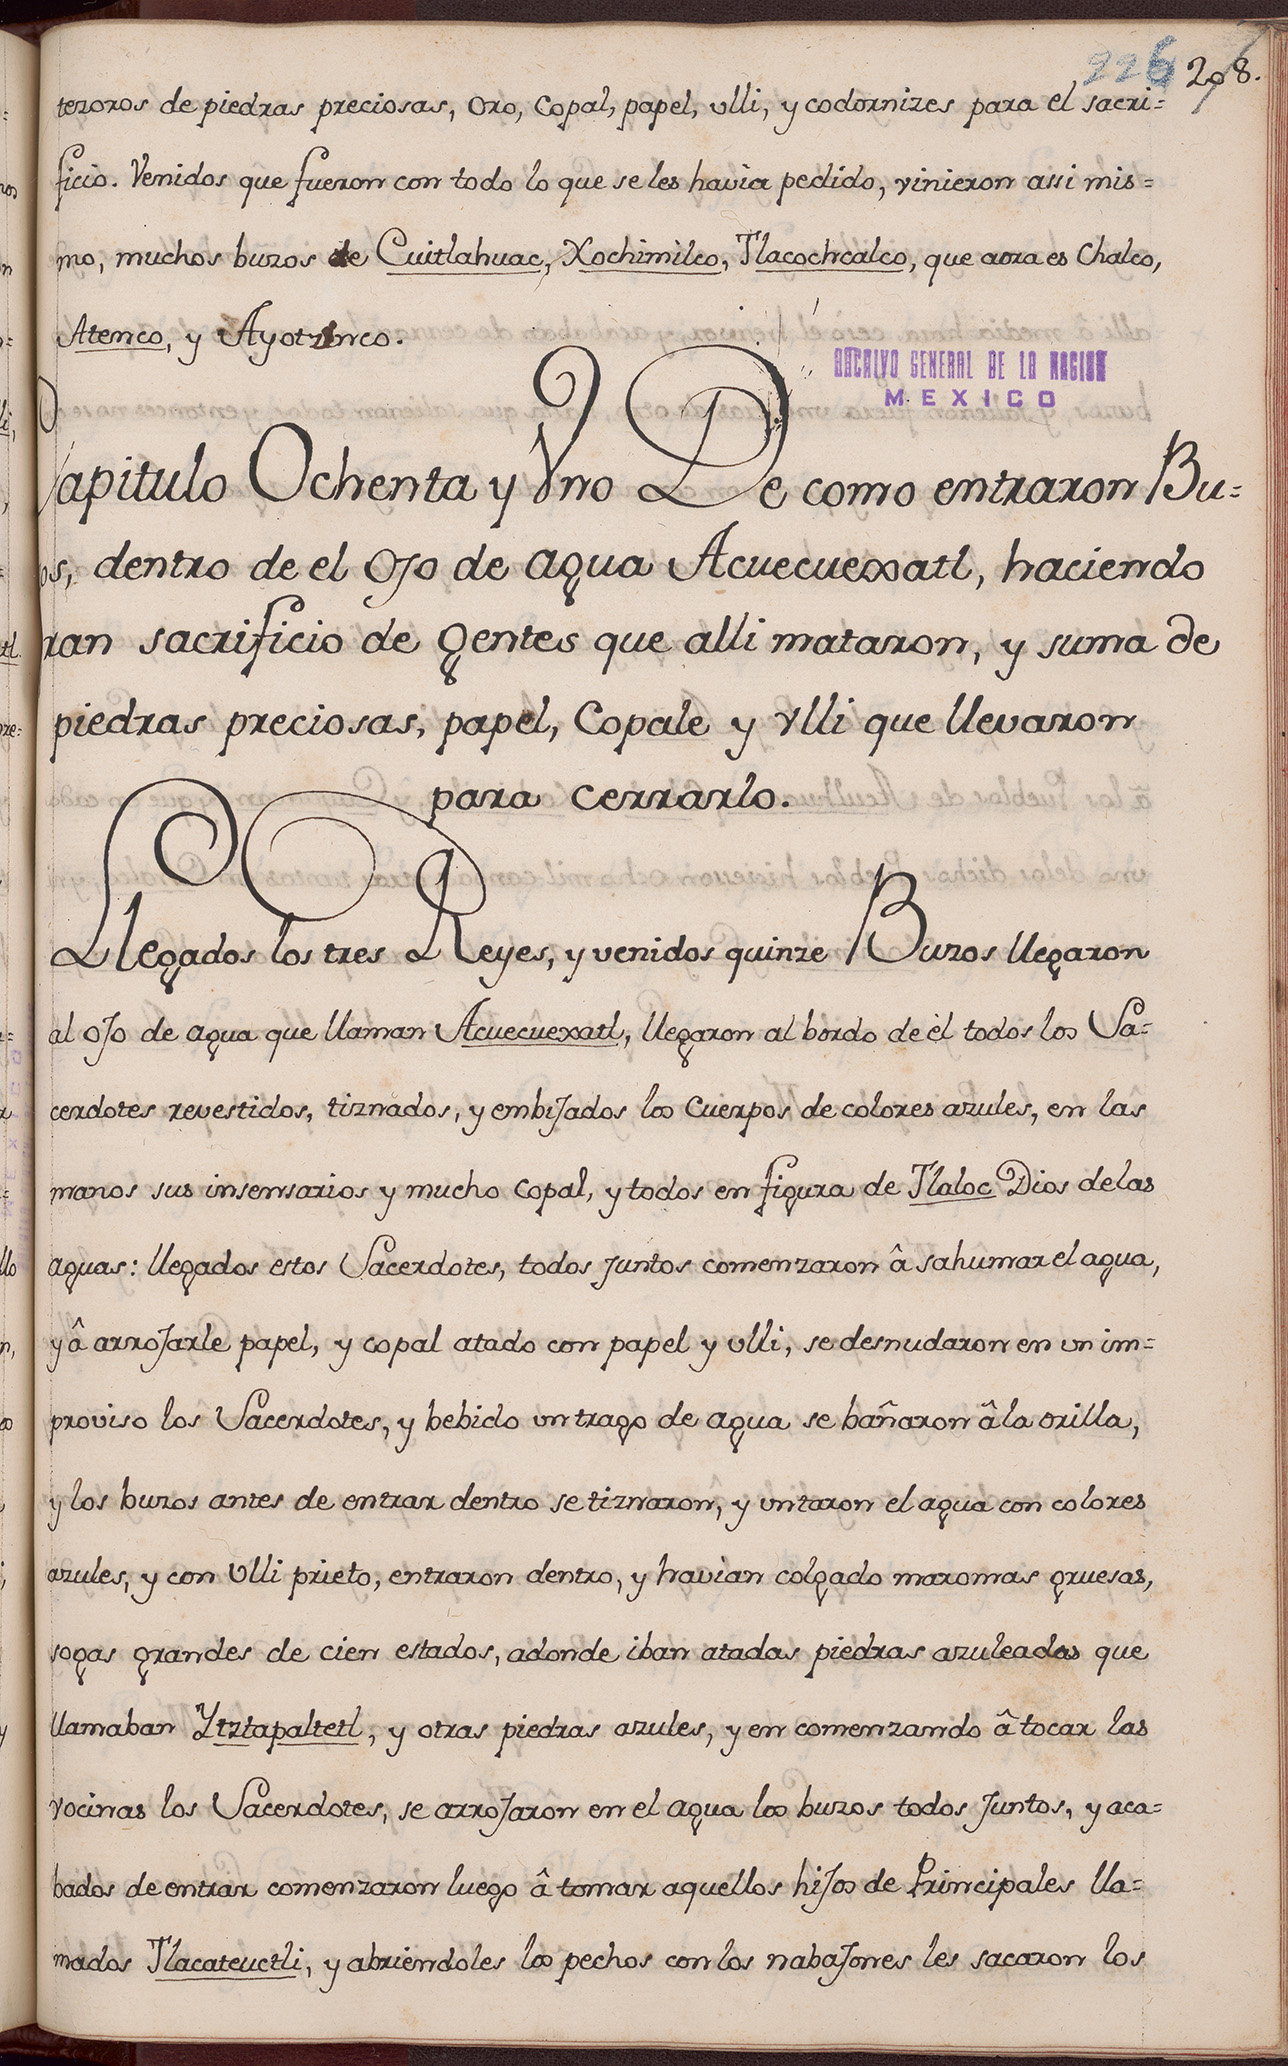 226 298.
tezoros de piedras preciosas, oro, copal, papel, vlli, y codornizes para el sacri=
ficio. Venidos que fueron con todo lo que se les havia pedido, vinieron assi mis=
mo, muchos buzos de Cuitlahuac, Xochimilco, Tlacochcalco, que aora es Chalco,
Atenco, y Ayotzinco.
ARCHIVO GENERAL DE LA NACION
MEXICO
Capitulo Ochenta y Vno De como entraron Bu=
os, dentro de el Ojo de agua Acuecuexatl, haciendo
ran sacrificio de gentes que alli mataron, y suma de
piedras preciosas, papel, Copale y vlli que llevaron
para cerrarlo.
Llegados los tres Reyes, y venidos quinze Buzos llegaron
al ojo de agua que llaman Acuecuexatl, llegaron al bordo de èl todos los Sa=
cerdotes revestidos, tiznados, y embijados los Cuerpos de colores azules, en las
manos sus insensarios y mucho copal, y todos en figura de Tlaloc Dios de las
aguas: llegados estos Sacerdotes, todos juntos comenzaron â sahumar el agua,
y â arrojarle papel, y copal atado con papel y vlli, se desnudaron en un im=
proviso los Sacerdotes, y bebido vn trago de agua se bañaron â la orilla,
y los buzos antes de entrar dentro se tiznaron, y vntaron el agua con colores
azules, y con Vlli prieto, entraron dentro, y havian colgado maromas gruesas,
sogas grandes de cien estados, adonde iban atadas piedras azuleadas que
llamaban Ytztapaltetl, y otras piedras azules, y en comenzando â tocar las
vocinas los Sacerdotes, se arrojaron en el agua los buzos todos juntos, y aca=
bados de entrar comenzaron luego â tomar aquellos hijos de Principales lla=
mados Tlacateuctli, y abriendoles los pechos con los nabajones les sacaron los